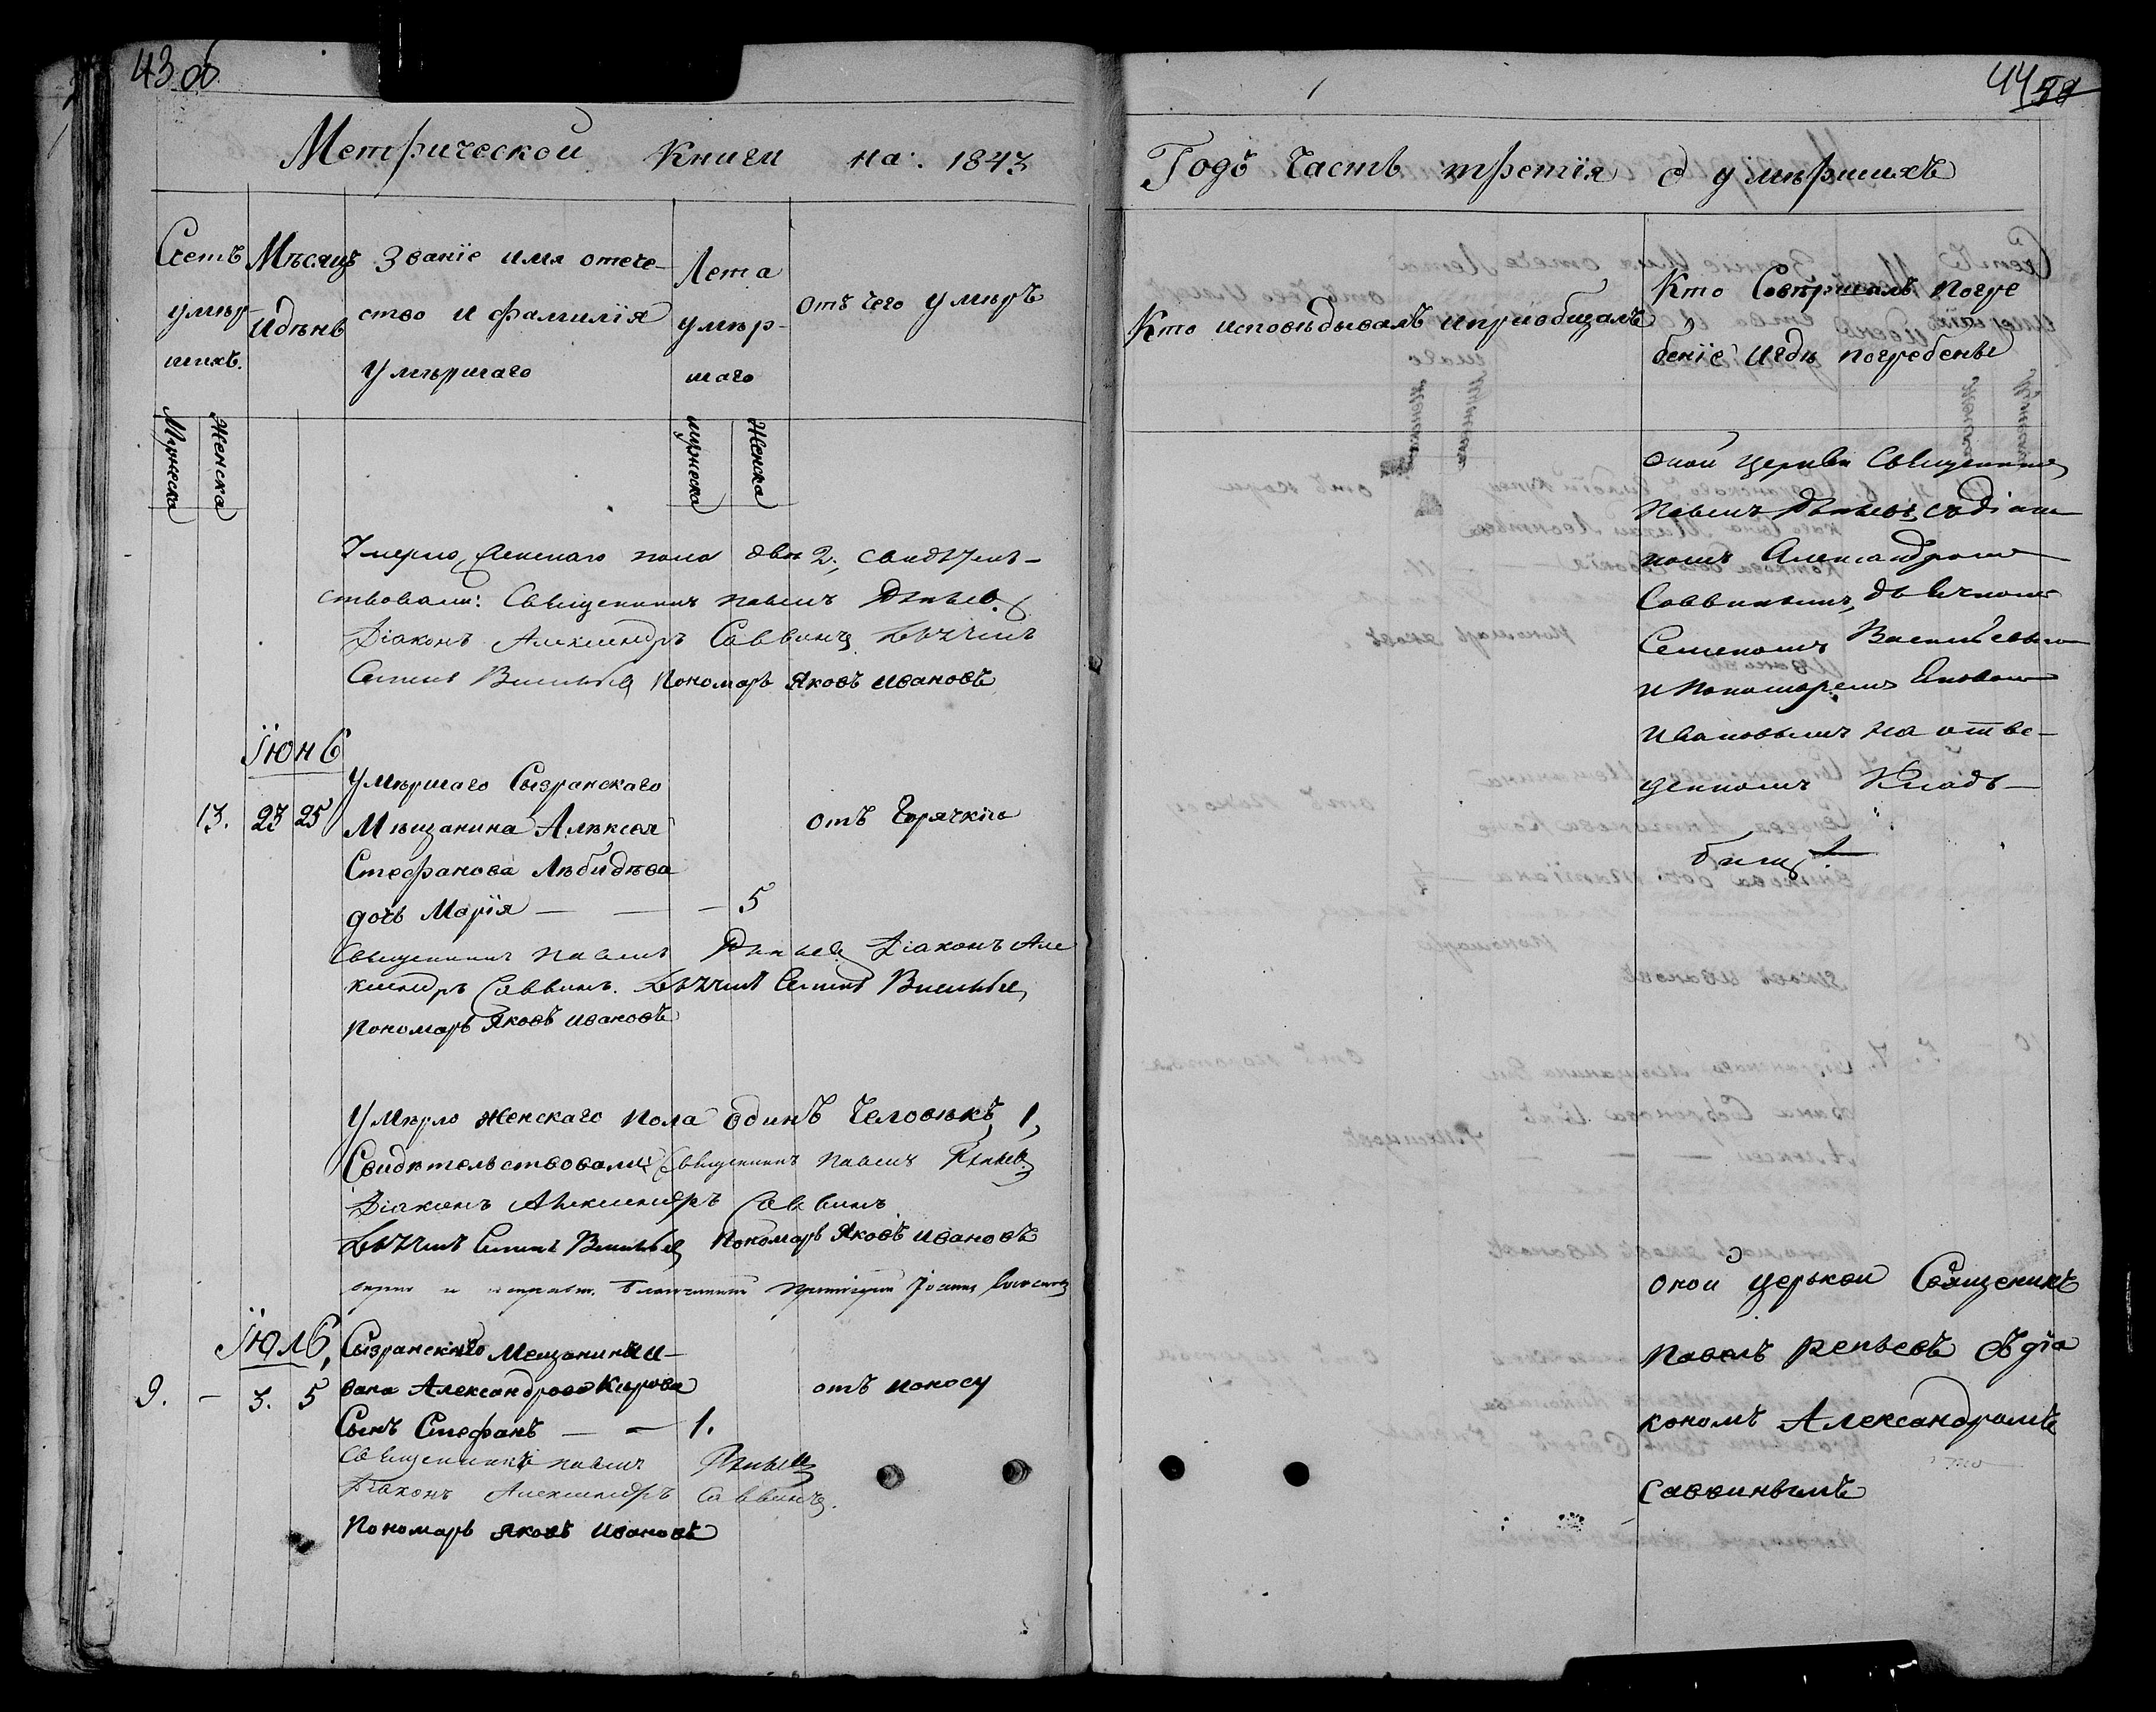 43 об
Метрической Книги на: 1843
Счетъ умѣр шихъ.
Мѣсяцъ и дѣнь
Званіе имя отече-
ство и фамилія
Умѣршаго
Лета
умѣр-
шаго
отъ чего умѣръ
Мужеска
Женска
мужеска
Женска
Умерло женскаго пола две 2, свидѣтель-
ствовали: Священникъ Павелъ Репьев.
Діаконъ Александръ Саввинъ
Семенъ Васильев Пономарь Яковъ Ивановъ
Іюнь
13. 23 25
Умѣршаго Сызранскаго
Мѣщанина Алѣксея
Стефанова Лѣбидѣва
дочь Марія — — — 5
отъ Горячкіи
Священникъ Павелъ Репьев Діаконъ Але
ксандръ Саввинъ. Семенъ Васильев
Пономарь Яковъ Ивановъ
Умѣрло женскаго пола одинъ Человѣкъ, 1,
Свидѣтельствовали: Священникъ Павелъ Репьев
Діаконъ Александръ Саввинъ
Семенъ Васильев Пономарь Яковъ Ивановъ
Іюль,
9. - 3. 5
Сызранскаго Мещанина И-
вана Александрова Кирова
Сынъ Стефанъ — — 1.
отъ поносу
Священникъ Павелъ Репьев
Діаконъ Александръ Саввинъ.
Пономарь Яковъ Ивановъ
44 58
Годъ Часть трѣтія о умѣршихъ
Кто исповѣдывалъ и пріобщалъ
Кто Совѣршалъ погре
беніе и гдѣ погребены
Оной церкви Священникъ
Павелъ Репьевъ, съ діако
номъ Александромъ
Саввинымъ, дьячкомъ
Семеномъ Васильевым
и Пономаремъ Яковом
Ивановымъ на отве-
денномъ Клад-
бищ
Оной церькви Священикъ
Павелъ Репьевъ съ діа
кономъ Александромъ
Саввинымъ